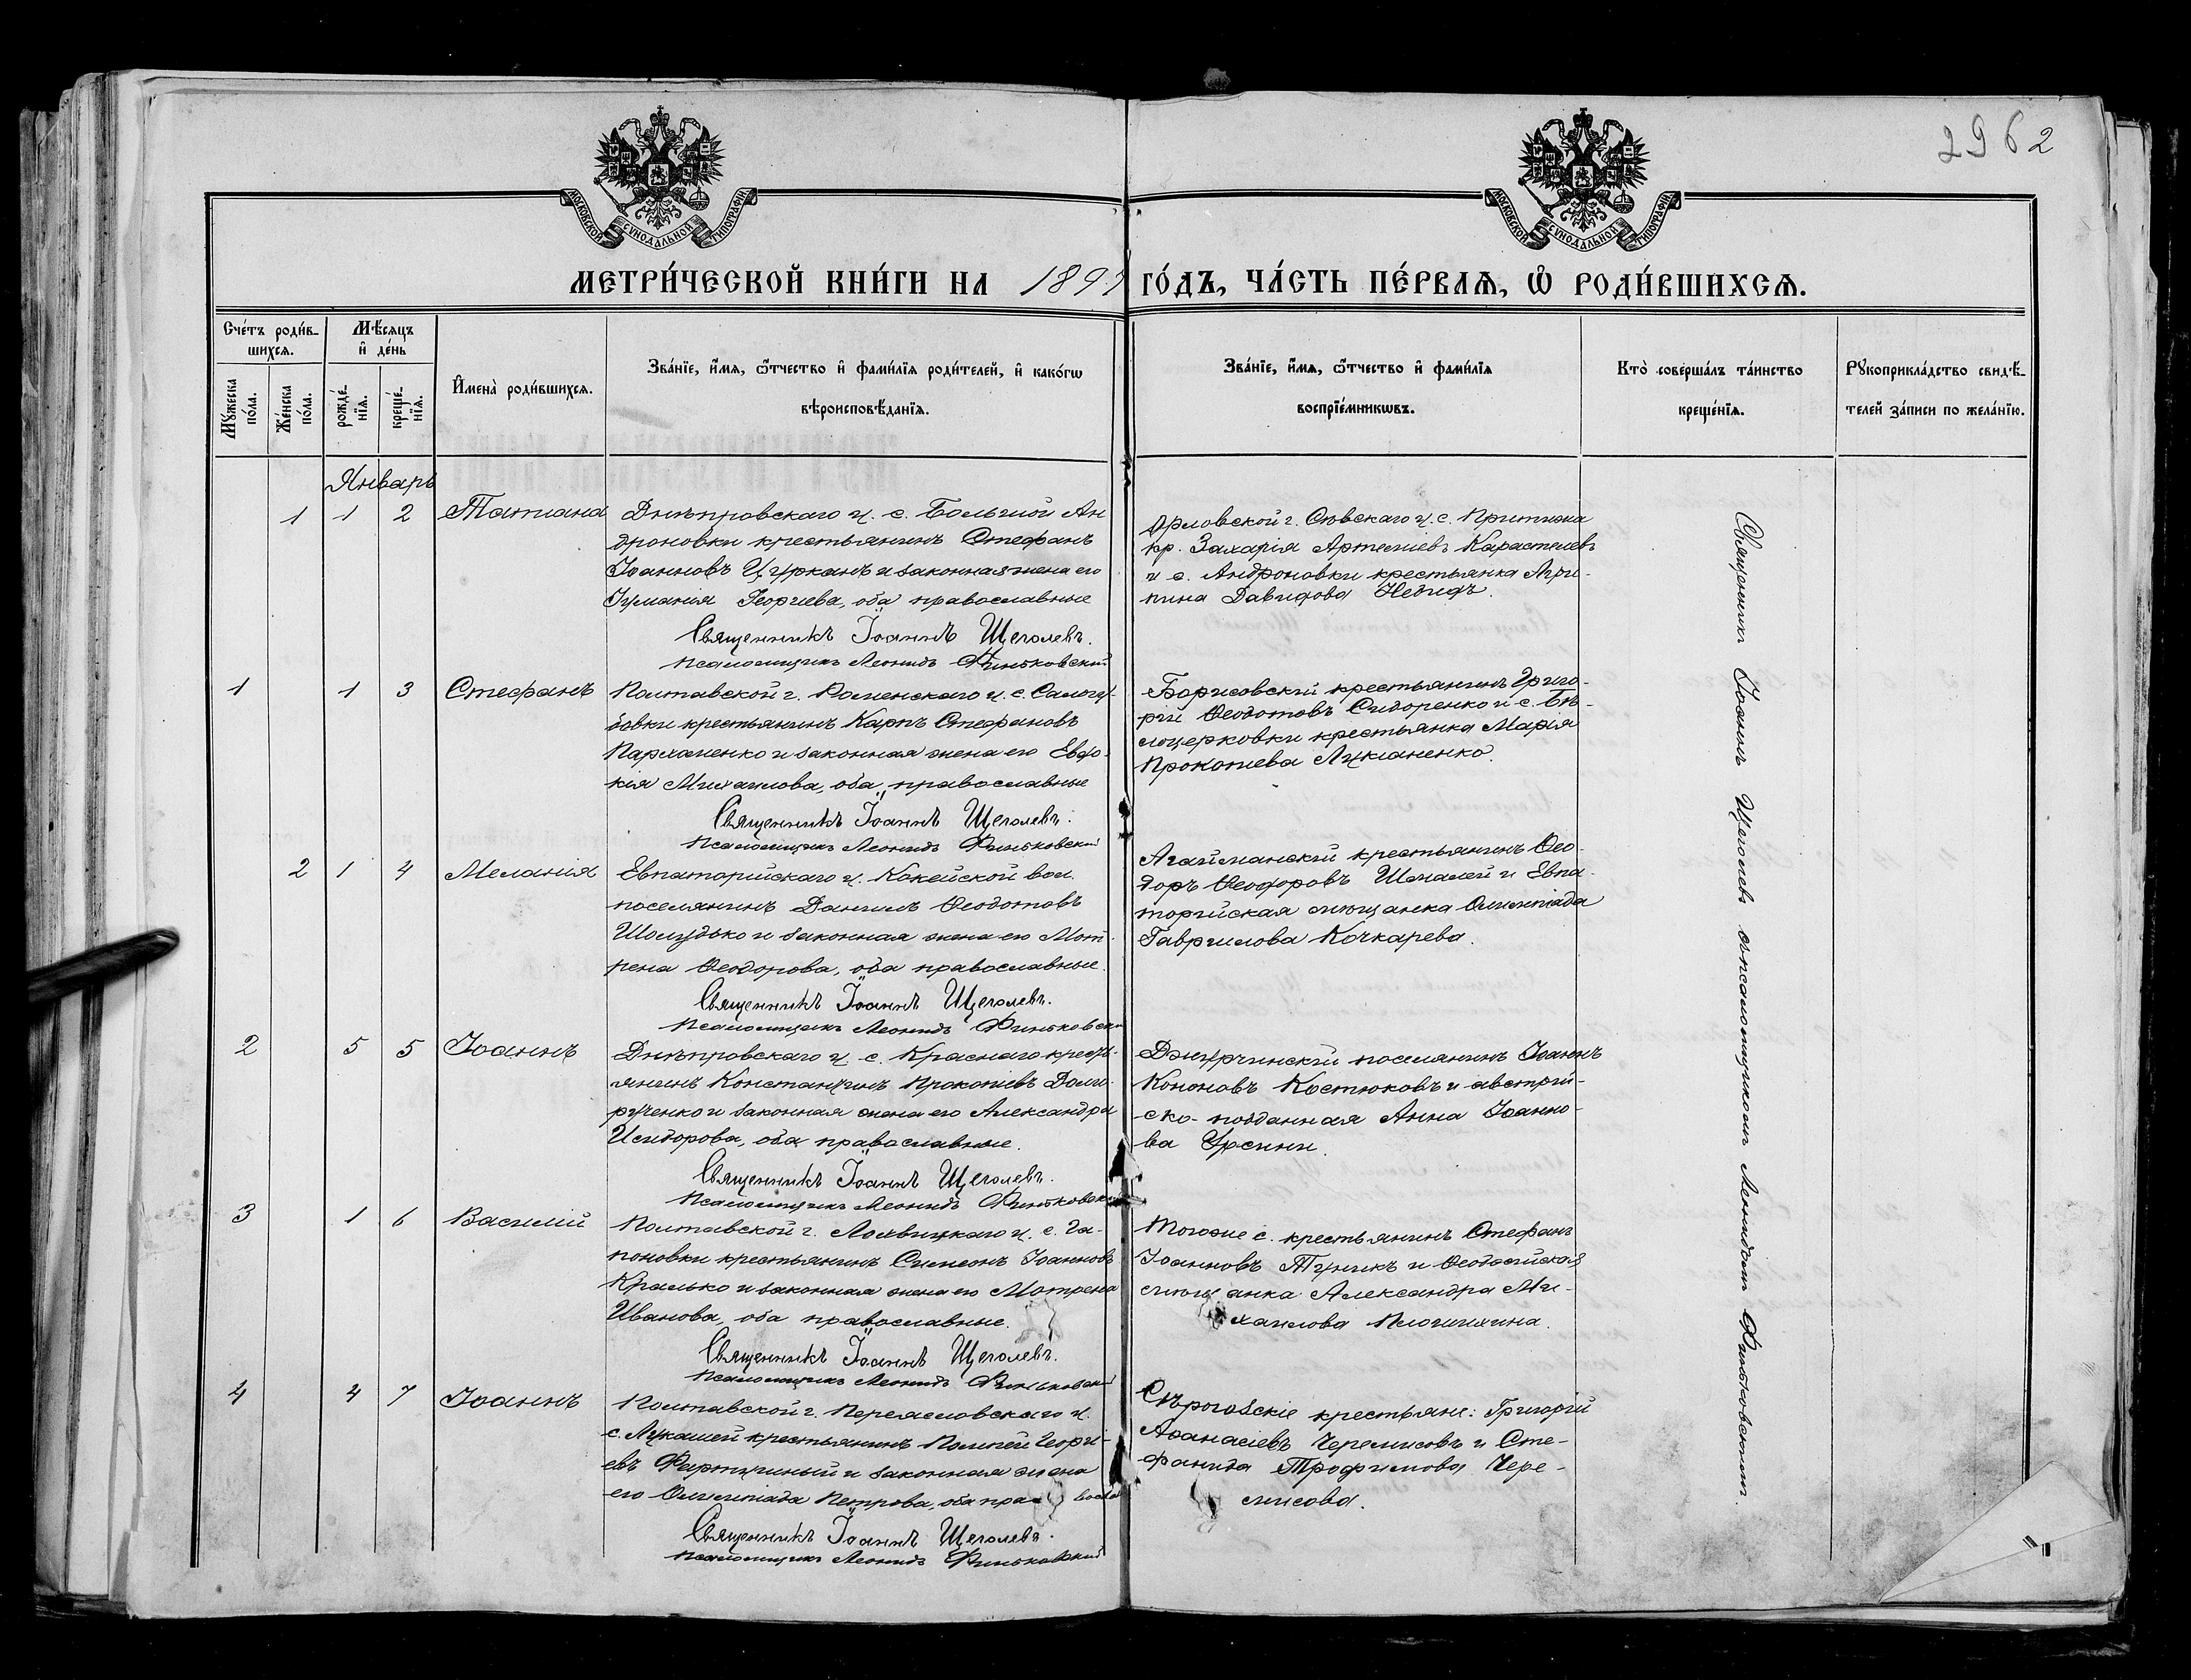 2962
МОСКОВСКОЙ СУНОДАЛЬНОЙ ТИПОГРАФІИ
МОСКОВСКОЙ СУНОДАЛЬНОЙ ТИПОГРАФІИ
МЕТРИ́ЧЕСКОЙ КНИ́ГИ НА 1899 ГО́ДЪ, ЧА́СТЬ ПЕ́РВАѦ, Ѡ҆ РОДИ́ВШИХСѦ.
Сче́тъ роди́в-
шихсѧ.
Мꙋжеска по́ла.
Же́нска по́ла.
Мѣ́сѧцъ
и҆ де́нь
рожде́-
нїѧ.
креще́-
нїѧ.
И҆мена̀ роди́вшихсѧ.
Зва́нїе, и҆́мѧ, ѻ҆́тчество и҆ фами́лїѧ роди́телей, и҆ како́гѡ
вѣроисповѣ́данїѧ.
Зва́нїе, и҆́мѧ, ѻ҆́тчество и҆ фами́лїѧ
воспрїе́мникѡвъ.
Кто̀ соверша́лъ та́инство
креще́нїѧ.
Рꙋкоприкла́дство свидѣ́-
телей за́писи по жела́нїю.
Январь
1 1 2 Татиана
Днѣпровскаго у. с. Большой Ан
дроновки крестьянинъ Стефанъ
Іоанновъ Цурканъ и законная жена его
Іуліанія Георгіева, оба православные
Священникъ Іоаннъ Щеголевъ.
Псаломщикъ Леонидъ Финьковскій
Орловской г. Сѣвскаго у. с.
кр. Захарія Артеміевъ Карастелевъ
и с. Андроновки крестьянка Агри-
пина Давидова
1 1 3 Стефанъ
Полтавской г. Роменскаго у. с.
бовки крестьянинъ Карпъ Стефановъ
Пархоменко и законная жена его Евдо-
кія Михаилова, оба православные
Священникъ Іоаннъ Щеголевъ.
Псаломщикъ Леонидъ Финьковскій
Борисовскій крестьянинъ Григо-
рій Ѳеодотовъ Сидоренко и с. Бѣ-
лоцерковки крестьянка Марія
Прокопіева Лукіаненко.
2 1 4 Меланія
Евпаторійскаго у. Кокейской вол.
поселянинъ Даніилъ Ѳеодотовъ
Шолудько и законная жена его Мот-
рена Ѳеодорова, оба православные.
Священникъ Іоаннъ Щеголевъ.
Псаломщикъ Леонидъ Финьковскій
Агайманскій крестьянинъ Ѳео-
доръ Ѳеодоровъ и Евпа-
торійская мѣщанка Олимпіада
Гавриилова Кочкарева.
2 5 5 Іоаннъ
Днѣпровскаго у. с. Краснаго кресть-
янинъ Константинъ Прокопіевъ Долго-
рученко и законная жена его Александра
Исидорова, оба православные.
Священникъ Іоаннъ Щеголевъ.
Псаломщикъ Леонидъ Финьковскій
Джурчинскій поселянинъ Іоаннъ
Кононовъ Костюковъ и австрій-
ско-подданная Анна Іоанно-
ва Урсини.
3 1 6 Василій
Полтавской г. Лохвицкаго у. с. Га-
поновки крестьянинъ Симеонъ Іоанновъ
Кралько и законная жена его Мотрена
Иванова, оба православные.
Священникъ Іоаннъ Щеголевъ.
Псаломщикъ Леонидъ Финьковскій
Тогоже с. крестьянинъ Стефанъ
Іоанновъ Тупикъ и Ѳеодосійская
мѣщанка Александра Ми-
хаилова
4 4 7 Іоаннъ
Полтавской г. Переясловскаго у.
с. Лукашей крестьянинъ Помпей Георгі-
евъ Фартушный и законная жена
его Олимпіада Петрова, оба
Священникъ Іоаннъ Щеголевъ.
Псаломщикъ Леонидъ Финьковскій
Сѣрогозскіе крестьяне: Григорій
Аѳанасіевъ Черемисовъ и Сте-
фанида Трофимова Чере-
мисова.
Священникъ Іоаннъ Щеголевъ съ псаломщикомъ Леонидомъ Финьковскимъ.